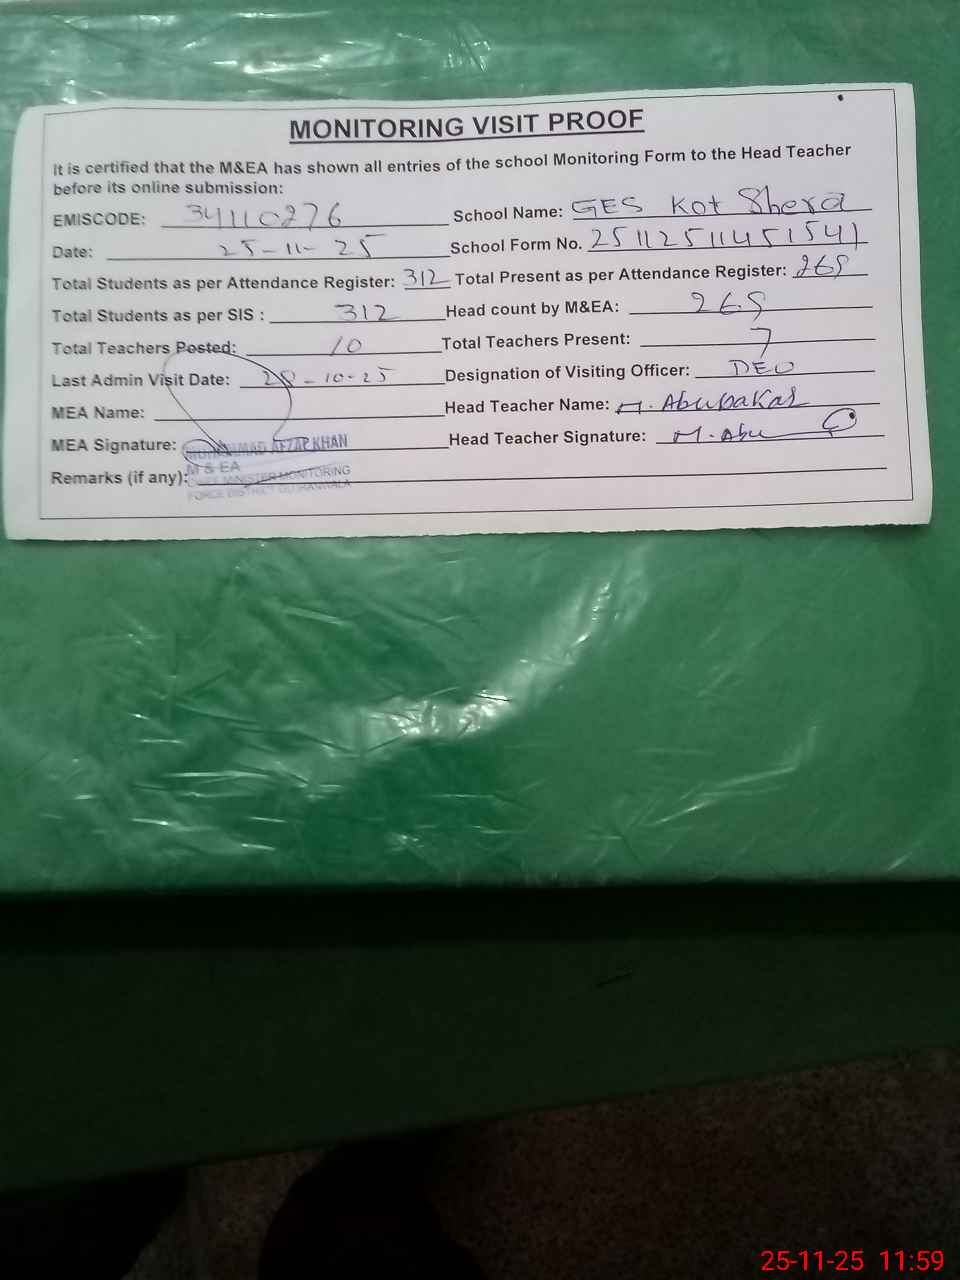 MONITORING VISIT PROOF
It is certified that the M&EA has shown all entries of the school Monitoring Form to the Head Teacher
before its online submission:
EMISCODE: 34110276 School Name: GES Kot Shera
Date: 25-11-25 School Form No. 25112511451541
Total Students as per Attendance Register: 312 Total Present as per Attendance Register: 268
Total Students as per SIS : 312 Head count by M&EA: 268
Total Teachers Posted: 10 Total Teachers Present: 7
Last Admin Visit Date: 28-10-25 Designation of Visiting Officer: DEO
MEA Name: Head Teacher Name: M. Abubakar
MEA Signature: MUHAMMAD AFZAL KHAN Head Teacher Signature: M. Abu
M & EA
Remarks (if any): CHIEF MINISTER MONITORING
FORCE DISTRICT GUJRANWALA
25-11-25 11:59